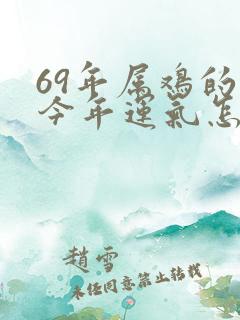 69年属鸡的
今年运气怎
赵雪
未经同意禁止转载